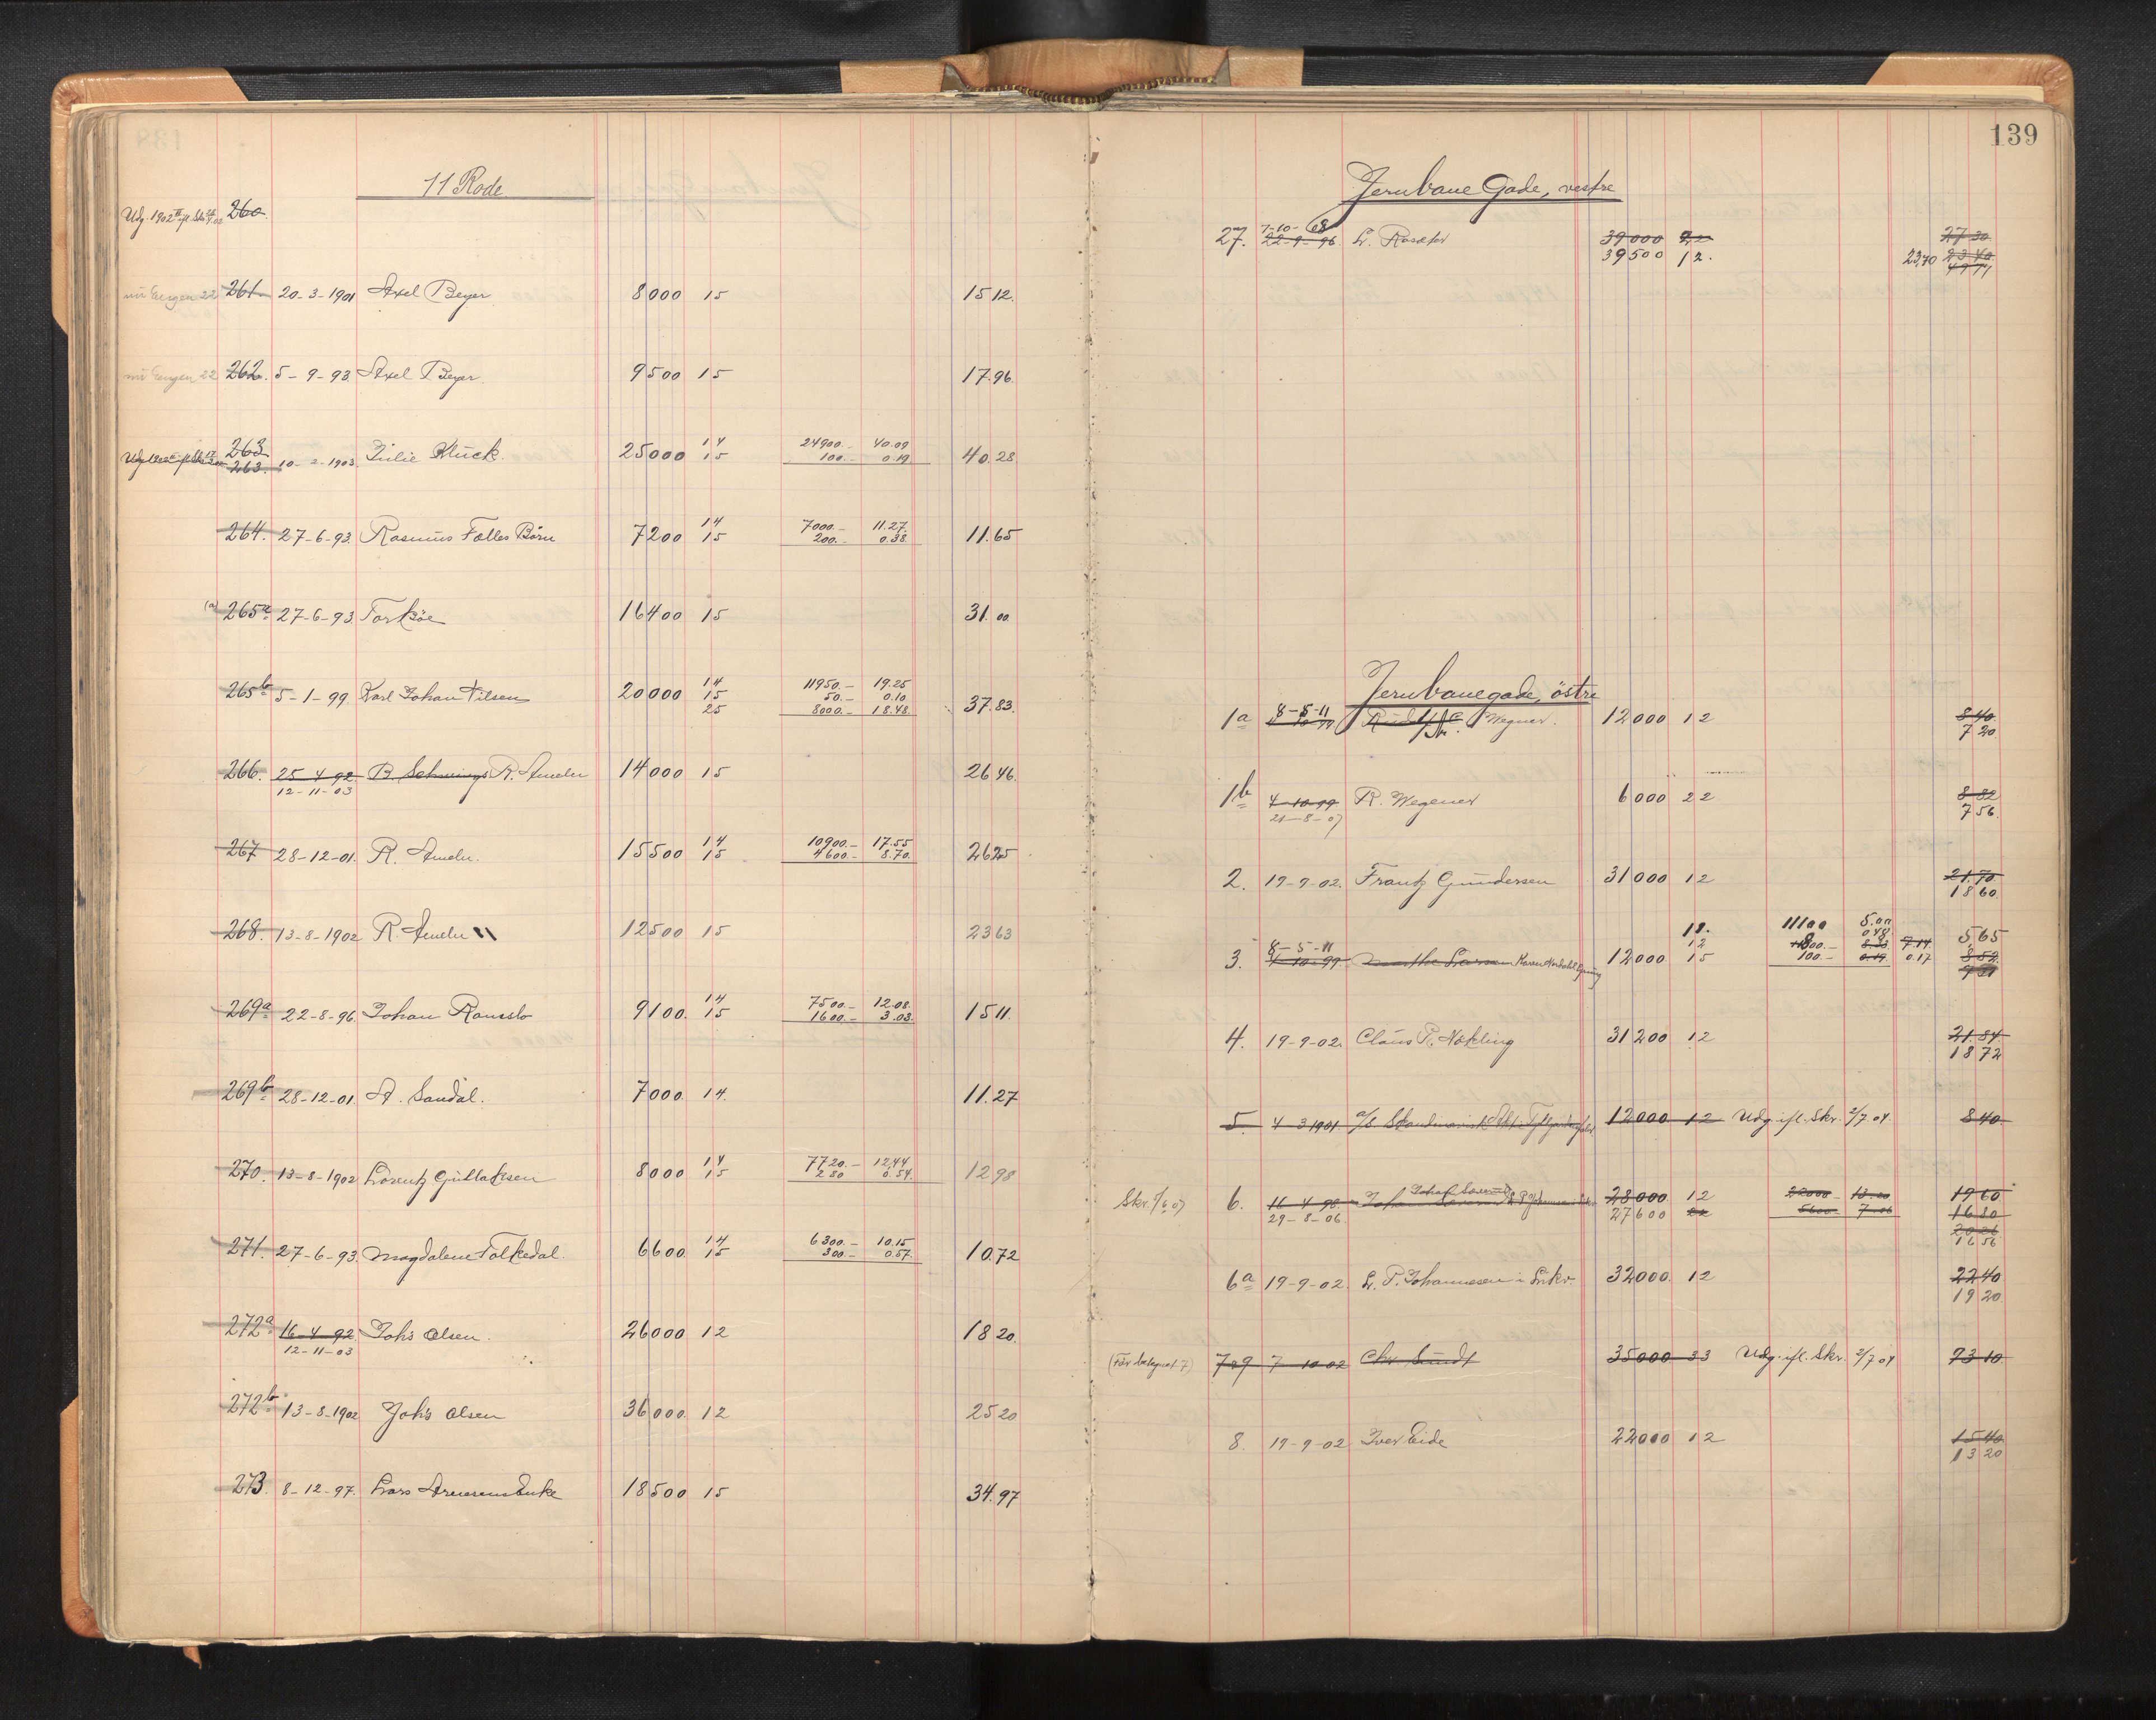 11 Rode
260.
261. 20-3-1901 Axel Beyer 8000 15 15 12.
262. 5-9-93. Axel Beyer 9500 15 17.96.
263 24900.- 40.09
263. 10-2-1903. Julie Kluck. 25000 14 15 100.- 0.19 40.28
264. 27-6-93. Rasmus Fælles Börn 7200 14 15 7000.- 11.27. 200.- 0.38. 11.65
(a) 265a 27-6-93. Torköe 16400 15 31.00
265b 5-1-99. Karl Johan Nilsen 20000 14 15 25 11950.- 19.25 50.- 0.10 8000.- 18.48. 37.83.
266. 25-4-92. B. R. Ameln 14000 15 26 46.
12-11-03
267 28-12-01. R. Ameln. 15500 14 15 10900.- 17.55 4600.- 8.70. 26 25
268. 13-8-1902 R. Ameln 12500 15 23 63
269a 22-8-96. Johan Ramslo 9100. 14 15 7500.- 12.08. 1600.- 3.03. 15 11.
269b 28-12-01. A. Sandal. 7000. 14. 11.27
270. 13-8-1902 Lorentz Gullaksen 8000 14 15 7720.- 12.44 280 0.54. 12 98
271. 27-6-93. Magdalene Folkedal. 6600 14 15 6300.- 10.15 300.- 0.57. 10.72
272a 16-4-92 Johs Olsen. 26000 12 18 20.
12-11-03
272b 13-8-1902 Johs Olsen 36000. 12 25 20
273. 8-12-97. Lars Enke 18500 15 34.97
139
Jernbane Gade, vestre
27. 7-10-08 39000 22 27 30
22-9-96 L. 39500 12. 23,40 23 40
Jernbanegade, östre
1a 8-5-11 Wegner. 12000 12 8 40
7 20
1b 4-10-99 R. Wegener 6000 22 8 82
21-8-07 7 56.
2. 19-9-02. Frantz Gundersen 31000 12 21.70
18 60
3. 8-5-11 12. 11100 5.00 5,65
4-10-99. 12000 12 15 100.- 0.19. 0.17 8 52
4. 19-9-02. Claus P. Nökling 31200 12 21.84
18 72
5. 4-3 1901 a/s. 12000 12 Udg. ifl. Skr. 2/7 04. 8 40
6. 16-4-98. 28000 12 22000 13.20 19 60
29-8-06. 27600 22 5600 7.06 16 80
16 56
6a 19-9-02. L. P. Johannesen 32000. 12 22 40
19 20
(Før betegnet 7) 7 7-10-02 Chr Sundt 35000 33 Udg. ifl. Skr. 2/7 04 73 10
8. 19-9-02 Iver Eide 22000 12 15 40
13 20